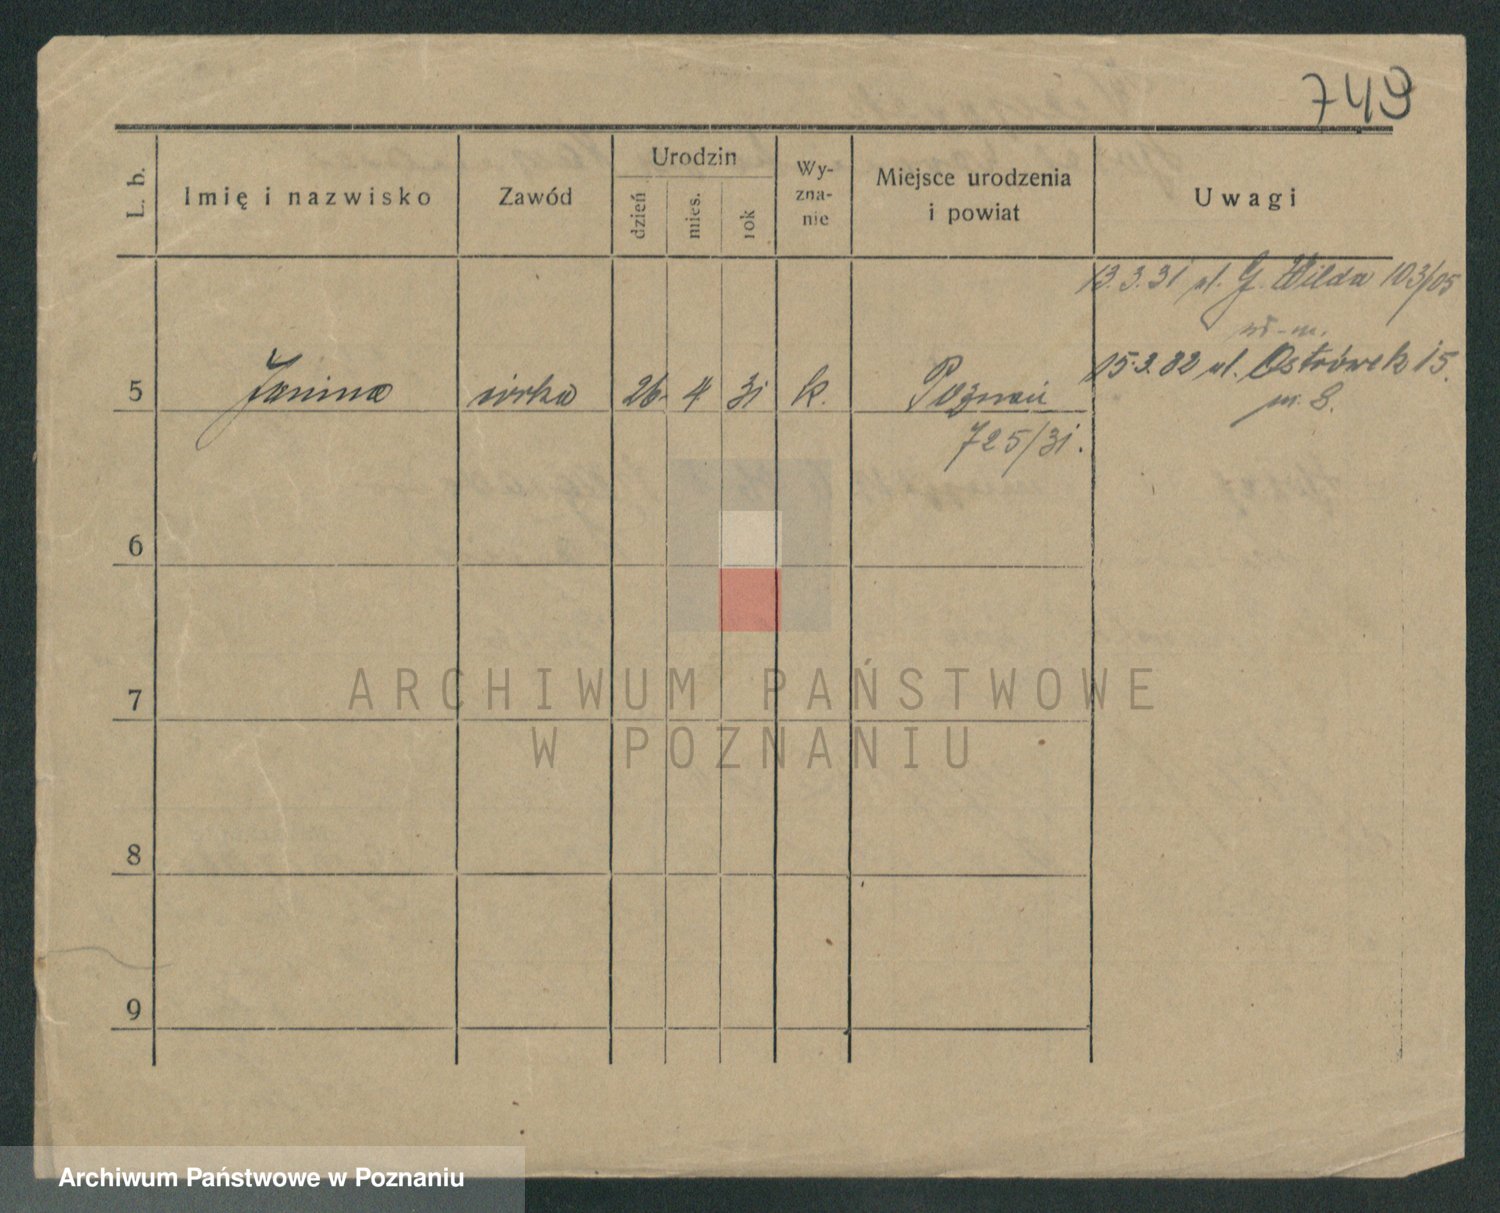 749
L. b.
Imię i nazwisko
Zawód
Urodzin
dzień
mies.
rok
Wy-
zna-
nie
Miejsce urodzenia
i powiat
Uwagi
13.3.31 ul. G. Wilda 103/05
15.3.32 ul. Ostrówek 15.
m. 8.
5 Janina córka 26 4 31 k. Poznań
725/31.
6
7
8
9
ARCHIWUM PAŃSTWOWE
W POZNANIU
Archiwum Państwowe w Poznaniu